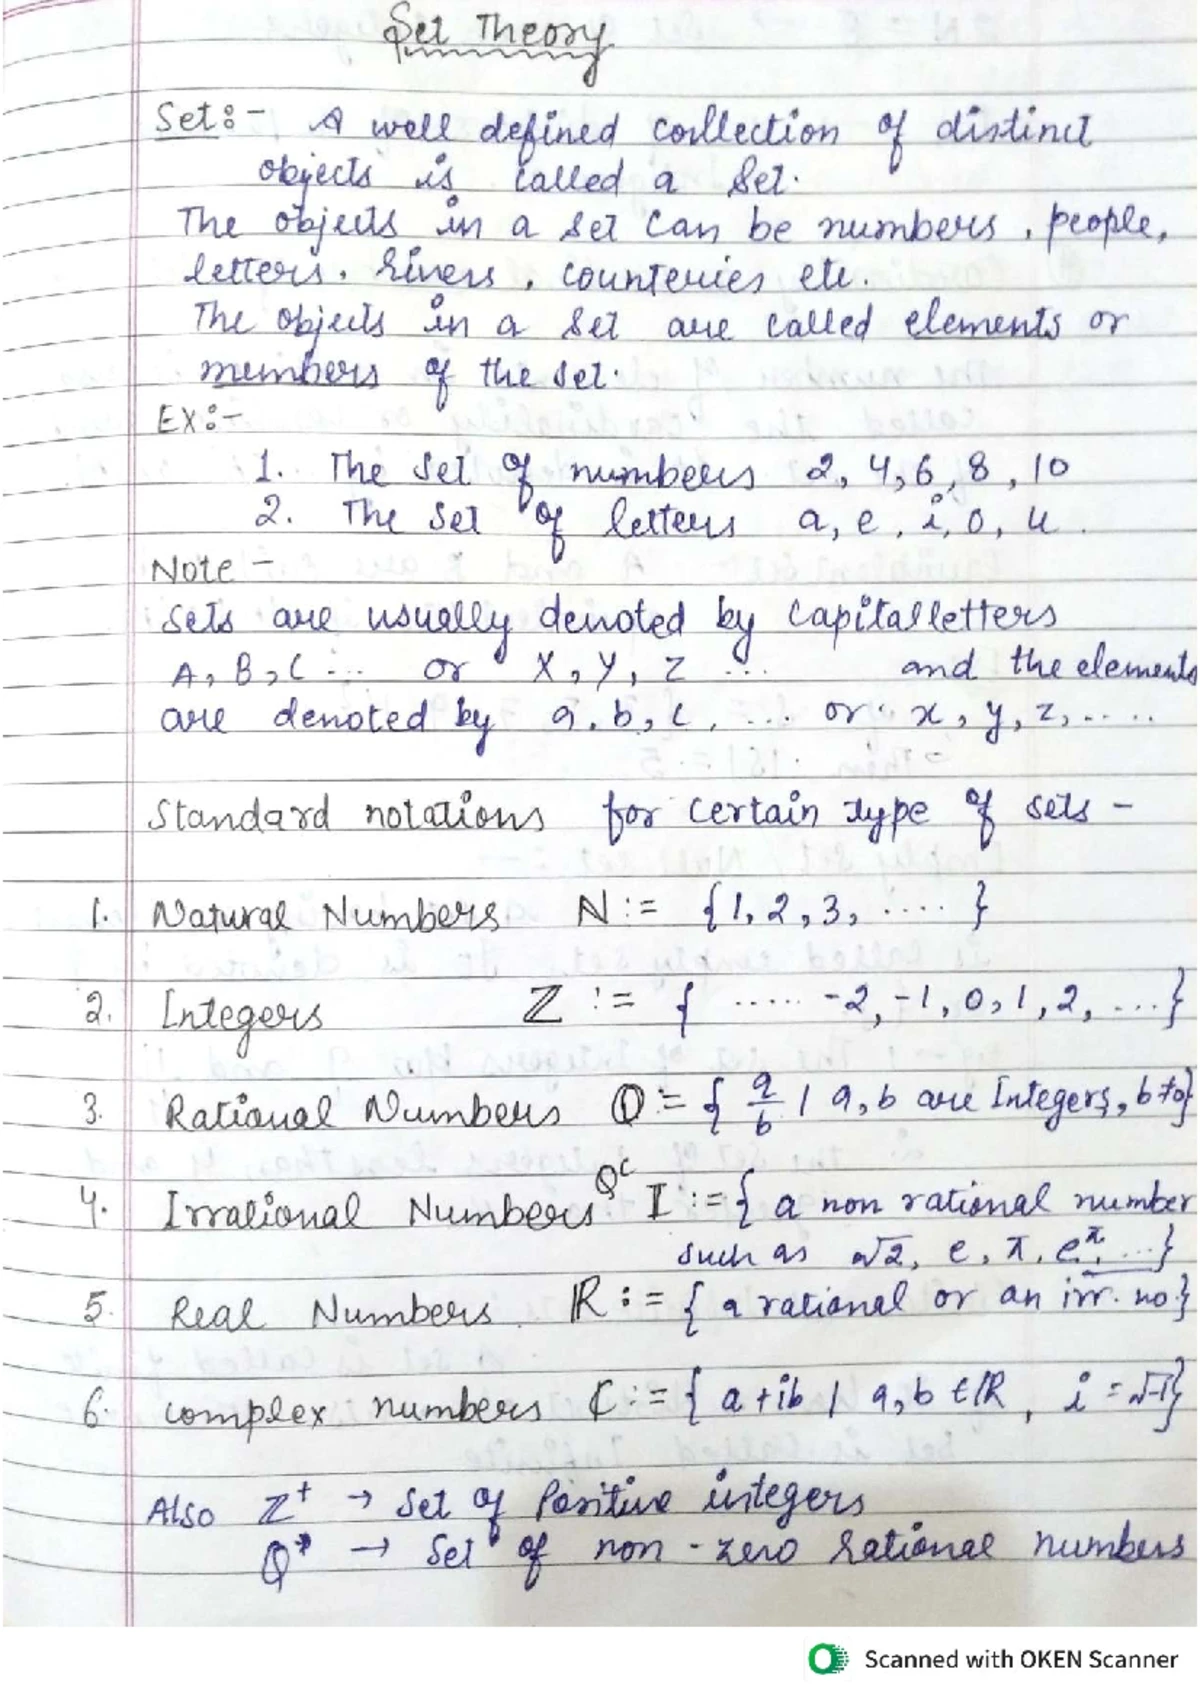 Set Theory
Set:- A well defined collection of distinct
objects is called a set.
The objects in a set can be numbers, people,
letters, rivers, counteries etc.
The objects in a set are called elements or
members of the set.
EX:-
1. The set of numbers 2, 4, 6, 8, 10
2. The set of letters a, e, i, o, u.
Note -
Sets are usually denoted by capital letters
A, B, C ... or X, Y, Z ... and the elements
are denoted by a, b, c, ... or x, y, z, .....
Standard notations for certain type of sets -
1. Natural Numbers N := {1, 2, 3, .... }
2. Integers ℤ := { ..... -2, -1, 0, 1, 2, ... }
3. Rational Numbers ℚ := { a/b | a, b are Integers, b≠0}
4. Irrational Numbers Qᶜ I := { a non rational number
such as √2, e, π, e^π, ...}
5. Real Numbers ℝ := { a rational or an irr. no.}
6. complex numbers ℂ := { a+ib | a, b ∈ ℝ, i = √-1}
Also ℤ⁺ → set of Positive integers
ℚ* → Set of non-zero rational numbers
Scanned with OKEN Scanner